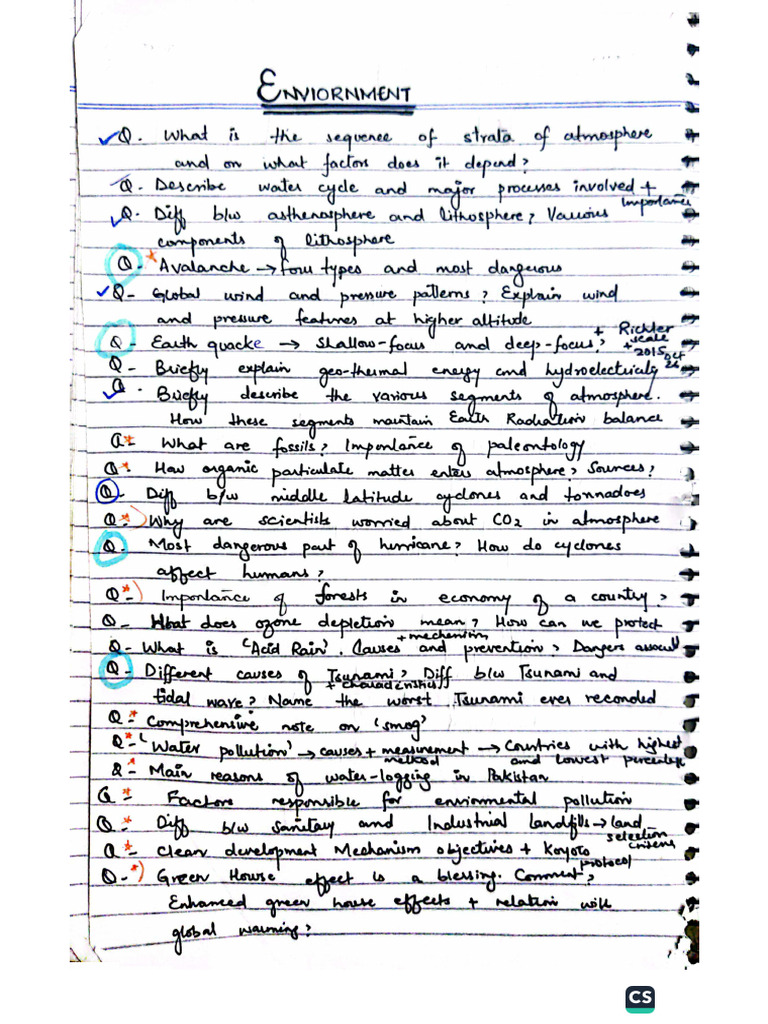 ENVIORNMENT
Q. What is the sequence of strata of atmosphere
and on what factors does it depend?
Q. Describe water cycle and major processes involved + Importance
Q. Diff b/w asthenosphere and lithosphere? Various
components of lithosphere
Q. * Avalanche → four types and most dangerous
Q- Global wind and pressure patterns? Explain wind
and pressure features at higher altitude
Q - Earth quacke → shallow-focus and deep-focus? + Richter scale + 2015 oct 26
Q - Briefly explain geo-thermal energy and hydroelectricity
Q. Briefly describe the various segments of atmosphere.
How these segments maintain Earth Radiation balance
Q* What are fossils? Importance of paleontology
Q*. How organic particulate matter enters atmosphere? Sources?
Q- Diff b/w middle latitude cyclones and tonnadoes
Q-*) Why are scientists worried about CO2 in atmosphere
Q. Most dangerous part of hurricane? How do cyclones
affect humans?
Q*-) Importance of forests in economy of a country?
Q- What does ozone depletion mean? How can we protect
Q- What is 'Acid Rain'. Causes + mechanism and prevention? Dangers
Q- Different causes of Tsunami? Diff b/w Tsunami and
+ characteristics
tidal wave? Name the worst Tsunami ever reconded
Q-* Comprehensive note on 'smog'
Q-* 'Water pollution' → causes + measurement method → Countries with highest and lowest percentage
Q-* Main reasons of water-logging in Pakistan
Q-* Factors responsible for envirnmental pollution
Q-* Diff b/w sanitary and Industrial landfills → land selection criteria
Q-* Clean development Mechanism objectives + Koyoto protocol
Q-*) Green House effect is a blessing. Comment?
Enhanced green house effects + relation with
global warming?
CS